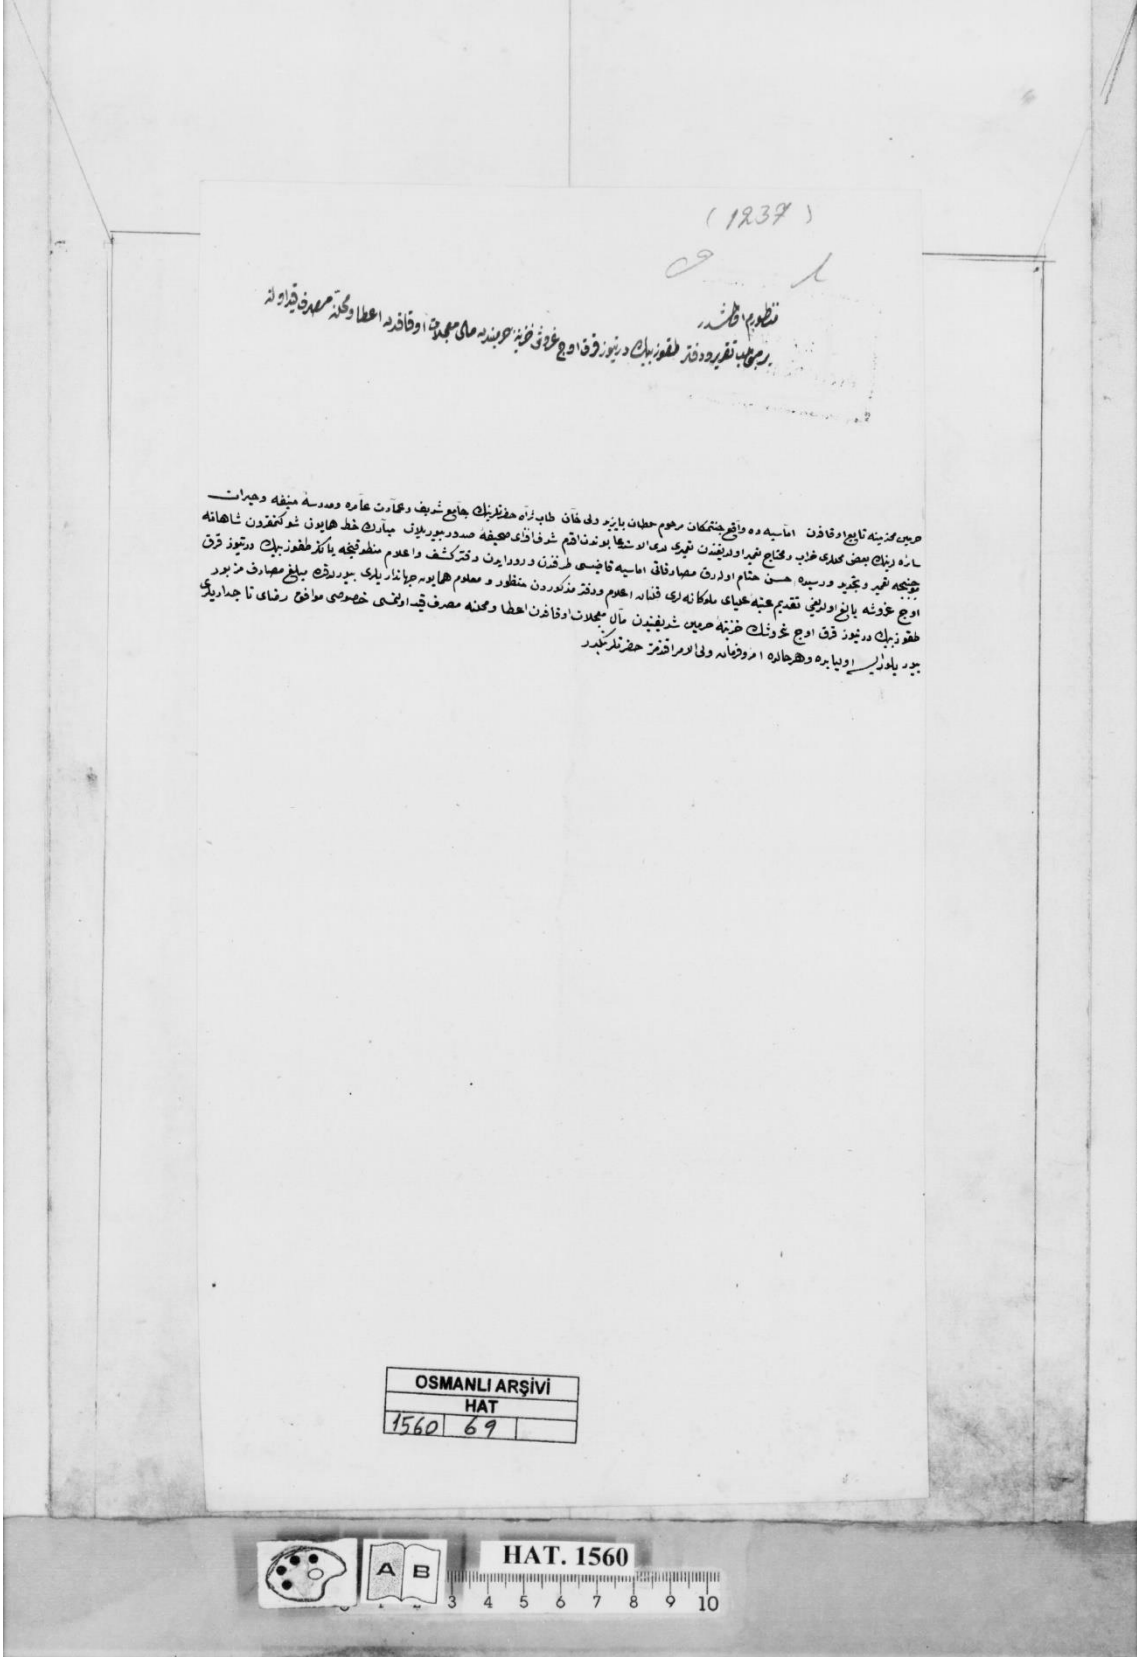 (1237)
منظورم اولمشدر
بر موجب تقرير و دفتر طقوز بيك درتيوز قرق اوچ غروشى خزينۀ حرميندن مال معجلات اوقافدن اعطا و محلنه مصرف قيد اولنه
حرمين محترمينه تابع اوقافدن اماسيه ده واقع جنتمكان مرحوم سلطان بايزيد ولى خان طاب ثراه حضرتلرينك جامع شريف و عمارت عامره و مدرسۀ منيفه و خيرات
سائره لرينك بعض محللرى خراب و محتاج تعمير اولديغندن تعميرى لدى الاستدعا بوندن اقدم شرفافزاى صحيفۀ صدور بيوريلان مبارك خط همايون شوكتمقرون شاهانه
موجبنجه تعمير و تجديد و رسيدۀ حسن ختام اولەرق مصارفاتى اماسيه قاضيسى طرفندن ورود ايدن دفتر كشف و اعلام منطوقنجه يالكز طقوز بيك درتيوز قرق
اوچ غروشه بالغ اولديغى تقديم عتبۀ علياى ملوكانه لرى قلنان اعلام و دفتر مذكوردن منظور و معلوم همايون جهانداريلرى بيورلدقده مبلغ مصارف مزبور
طقوز بيك درتيوز قرق اوچ غروشك خزينۀ حرمين شريفيندن مال معجلات اوقافدن اعطا و محلنه مصرف قيد اولنمسى خصوصى موافق رضاى تاجداريلرى
بيوريلور ايسه اولبابده و هر حالده امر و فرمان ولى الامر افندمز حضرتلرينكدر
OSMANLI ARŞİVİ
HAT
1560 69
HAT. 1560
A B
3 4 5 6 7 8 9 10